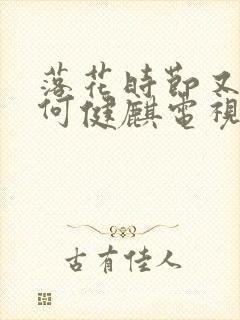 落花時節又
何健麒電視
古有佳人